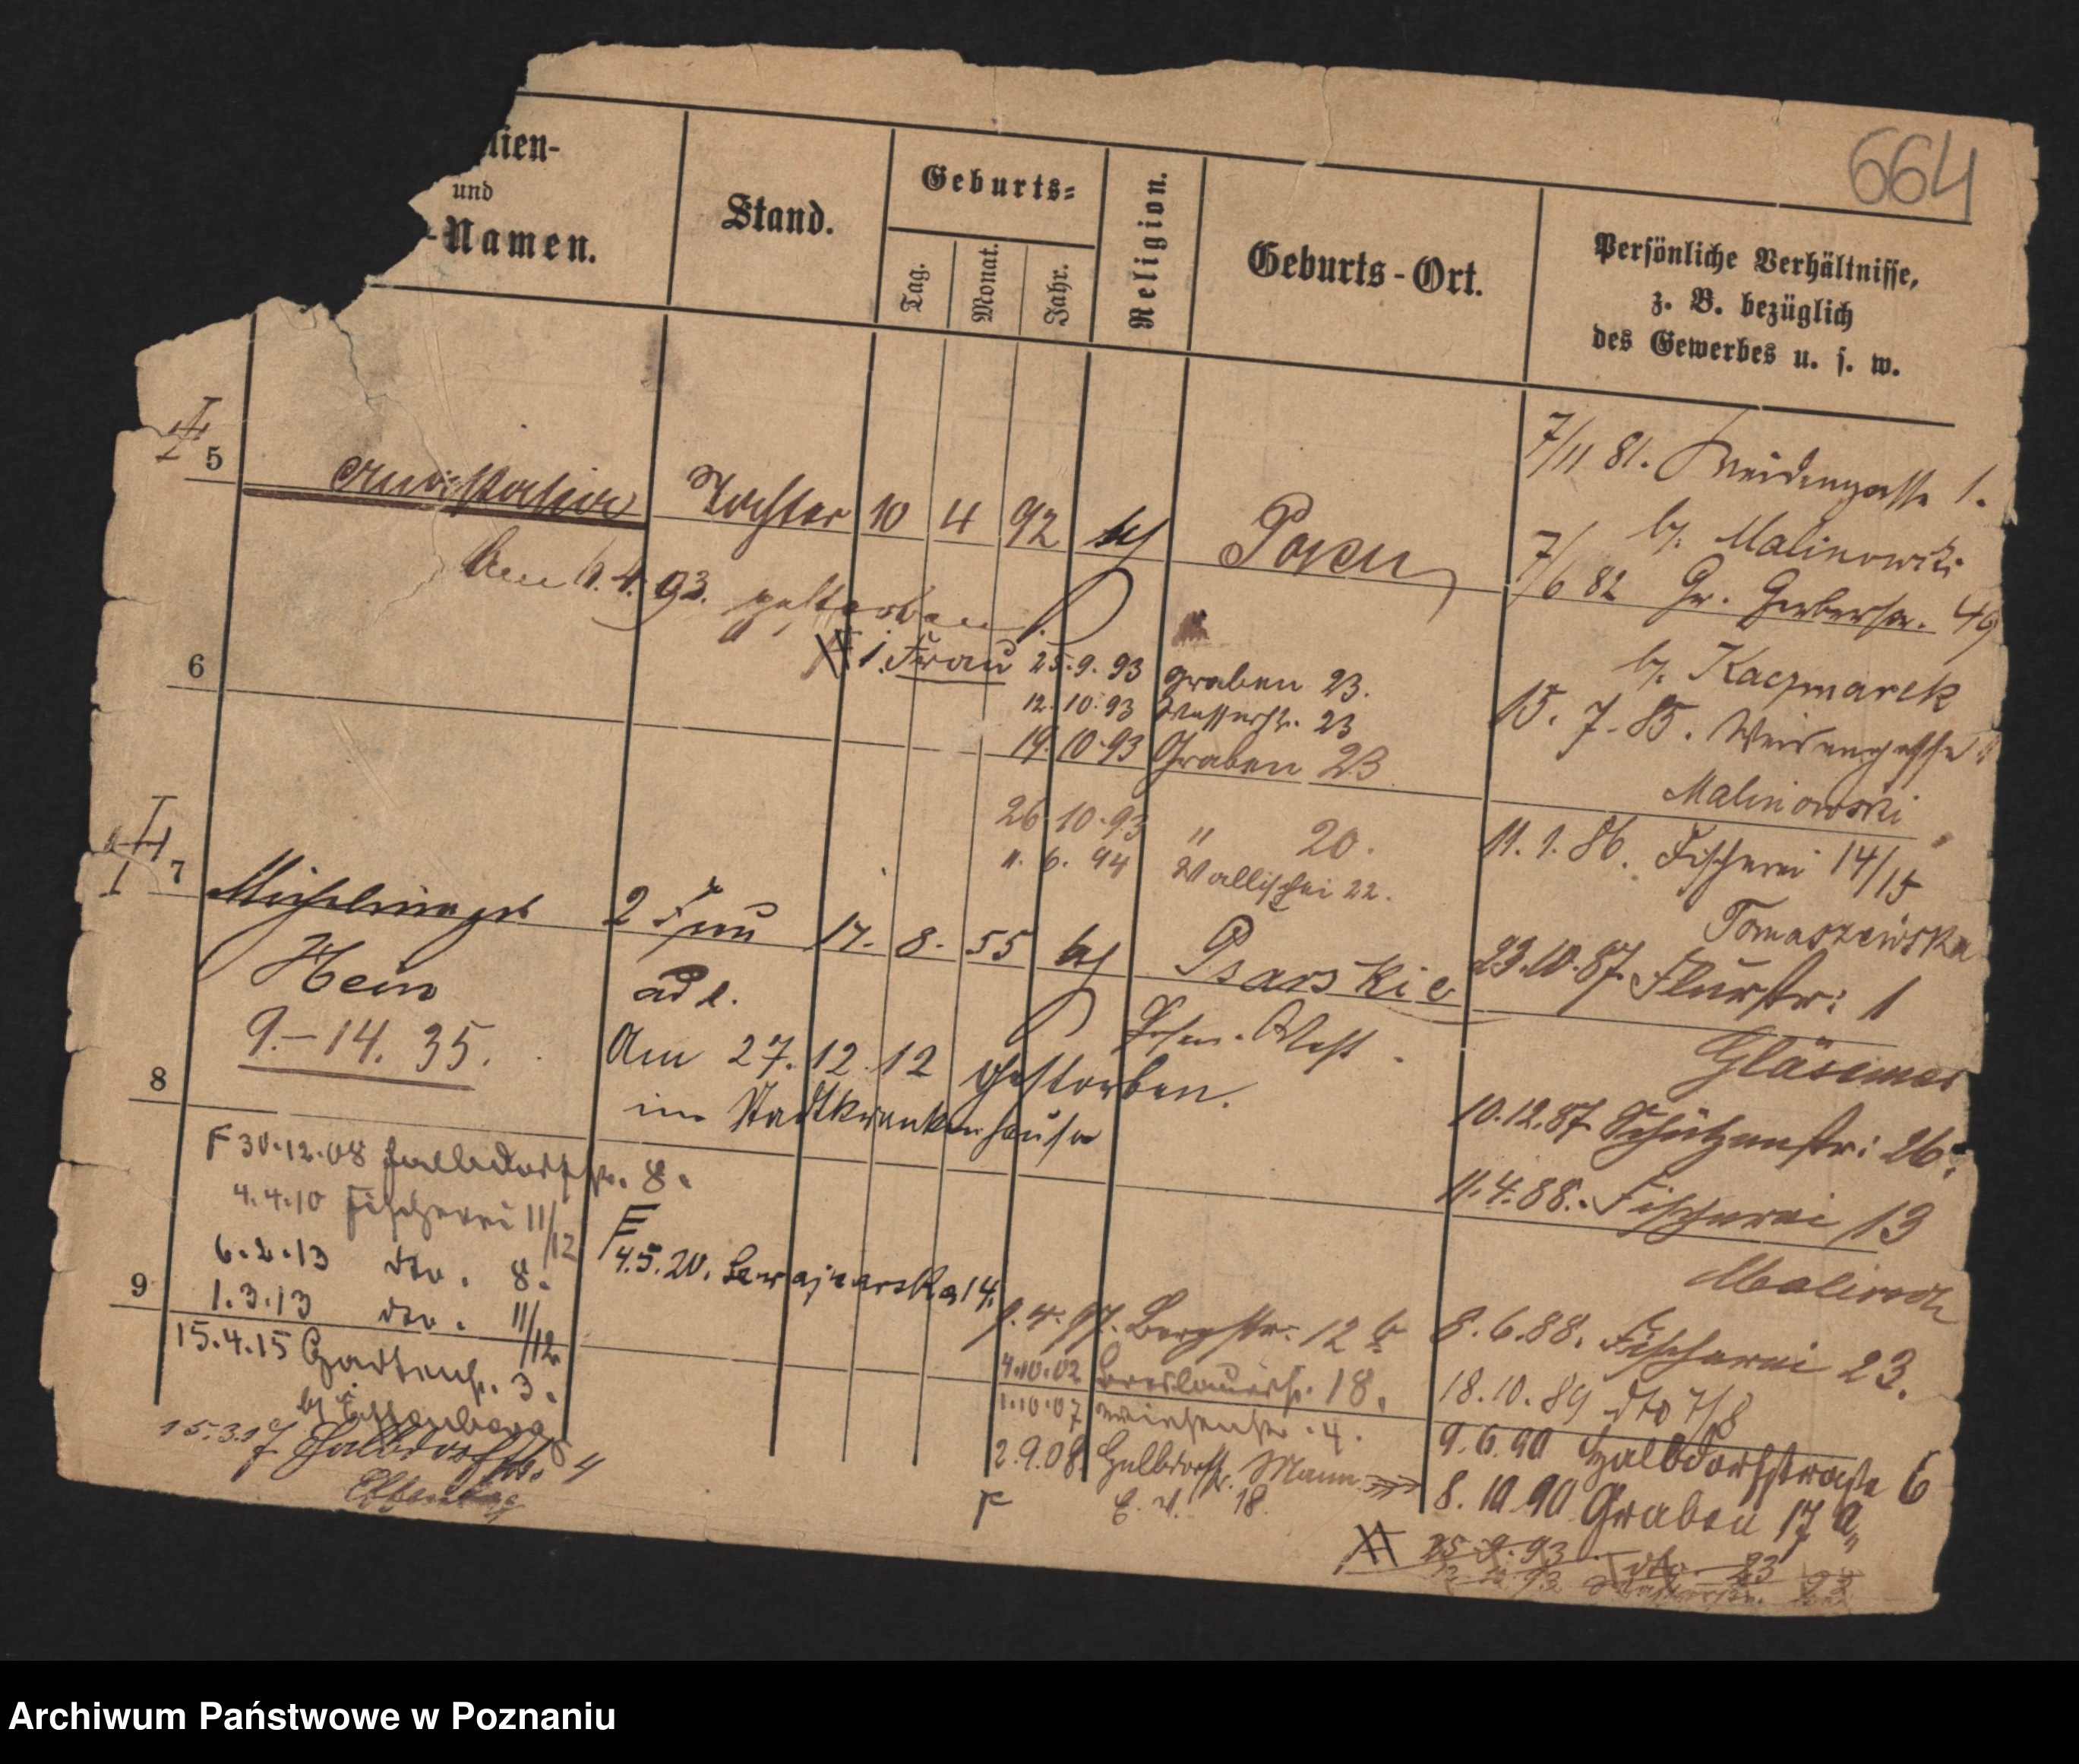 664
lien-
und
-Namen.
Stand.
Geburts-
Tag.
Monat.
Jahr.
Religion.
Geburts-Ort.
Persönliche Verhältnisse,
z. B. bezüglich
des Gewerbes u. s. w.
5
Tochter 10 4 92 Posen
gestorben
6
1. Frau 25.9.93 Graben 23.
12.10.93 Wasserstr. 23
19.10.93 Graben 23
26.10.93 " 20.
11. 6. 94 Wallischei 22.
7
2 Frau 17. 8. 55 kt Psarskie
Hein
9.-14. 35.
ad 2.
Am 27.12.12 gestorben.
im Stadtkrankenhause
8
F 30.12.08 Halbdorfstr. 8.
4.4.10 Fischerei 11/12
6.2.13 dto. 8.
1.3.13 dto. 11/12
9
15.4.15 Gartenstr. 3.
15.3.17 Halbdorfstr. 4
F
4.5.20. 14.
1.4.97. Bergstr. 12 b
4.10.02 Breslauerstr. 18.
1.10.07 Wiesenstr. 4.
2.9.08 Halbdorfstr. Mann
18.
7/11 81. Weidengasse 1.
b. Malinowski
7/6 82 Gr. Gerberstr. 49
b. Kaczmarek
15. 7. 85. Weidengasse
Malinowski
11. 1. 86. Fischerei 14/15
Tomaszewska
23.10.87. Flurstr: 1
Gläsemer
10.12.87 Schützenstr: 26.
11.4.88. Fischerei 13
8.6.88. Fischerei 23.
18.10.89 dto 7/8
9.6.90 Halbdorfstrasse 6
8.10.90 Graben 17 a
25.9.93 dto. 23
Archiwum Państwowe w Poznaniu